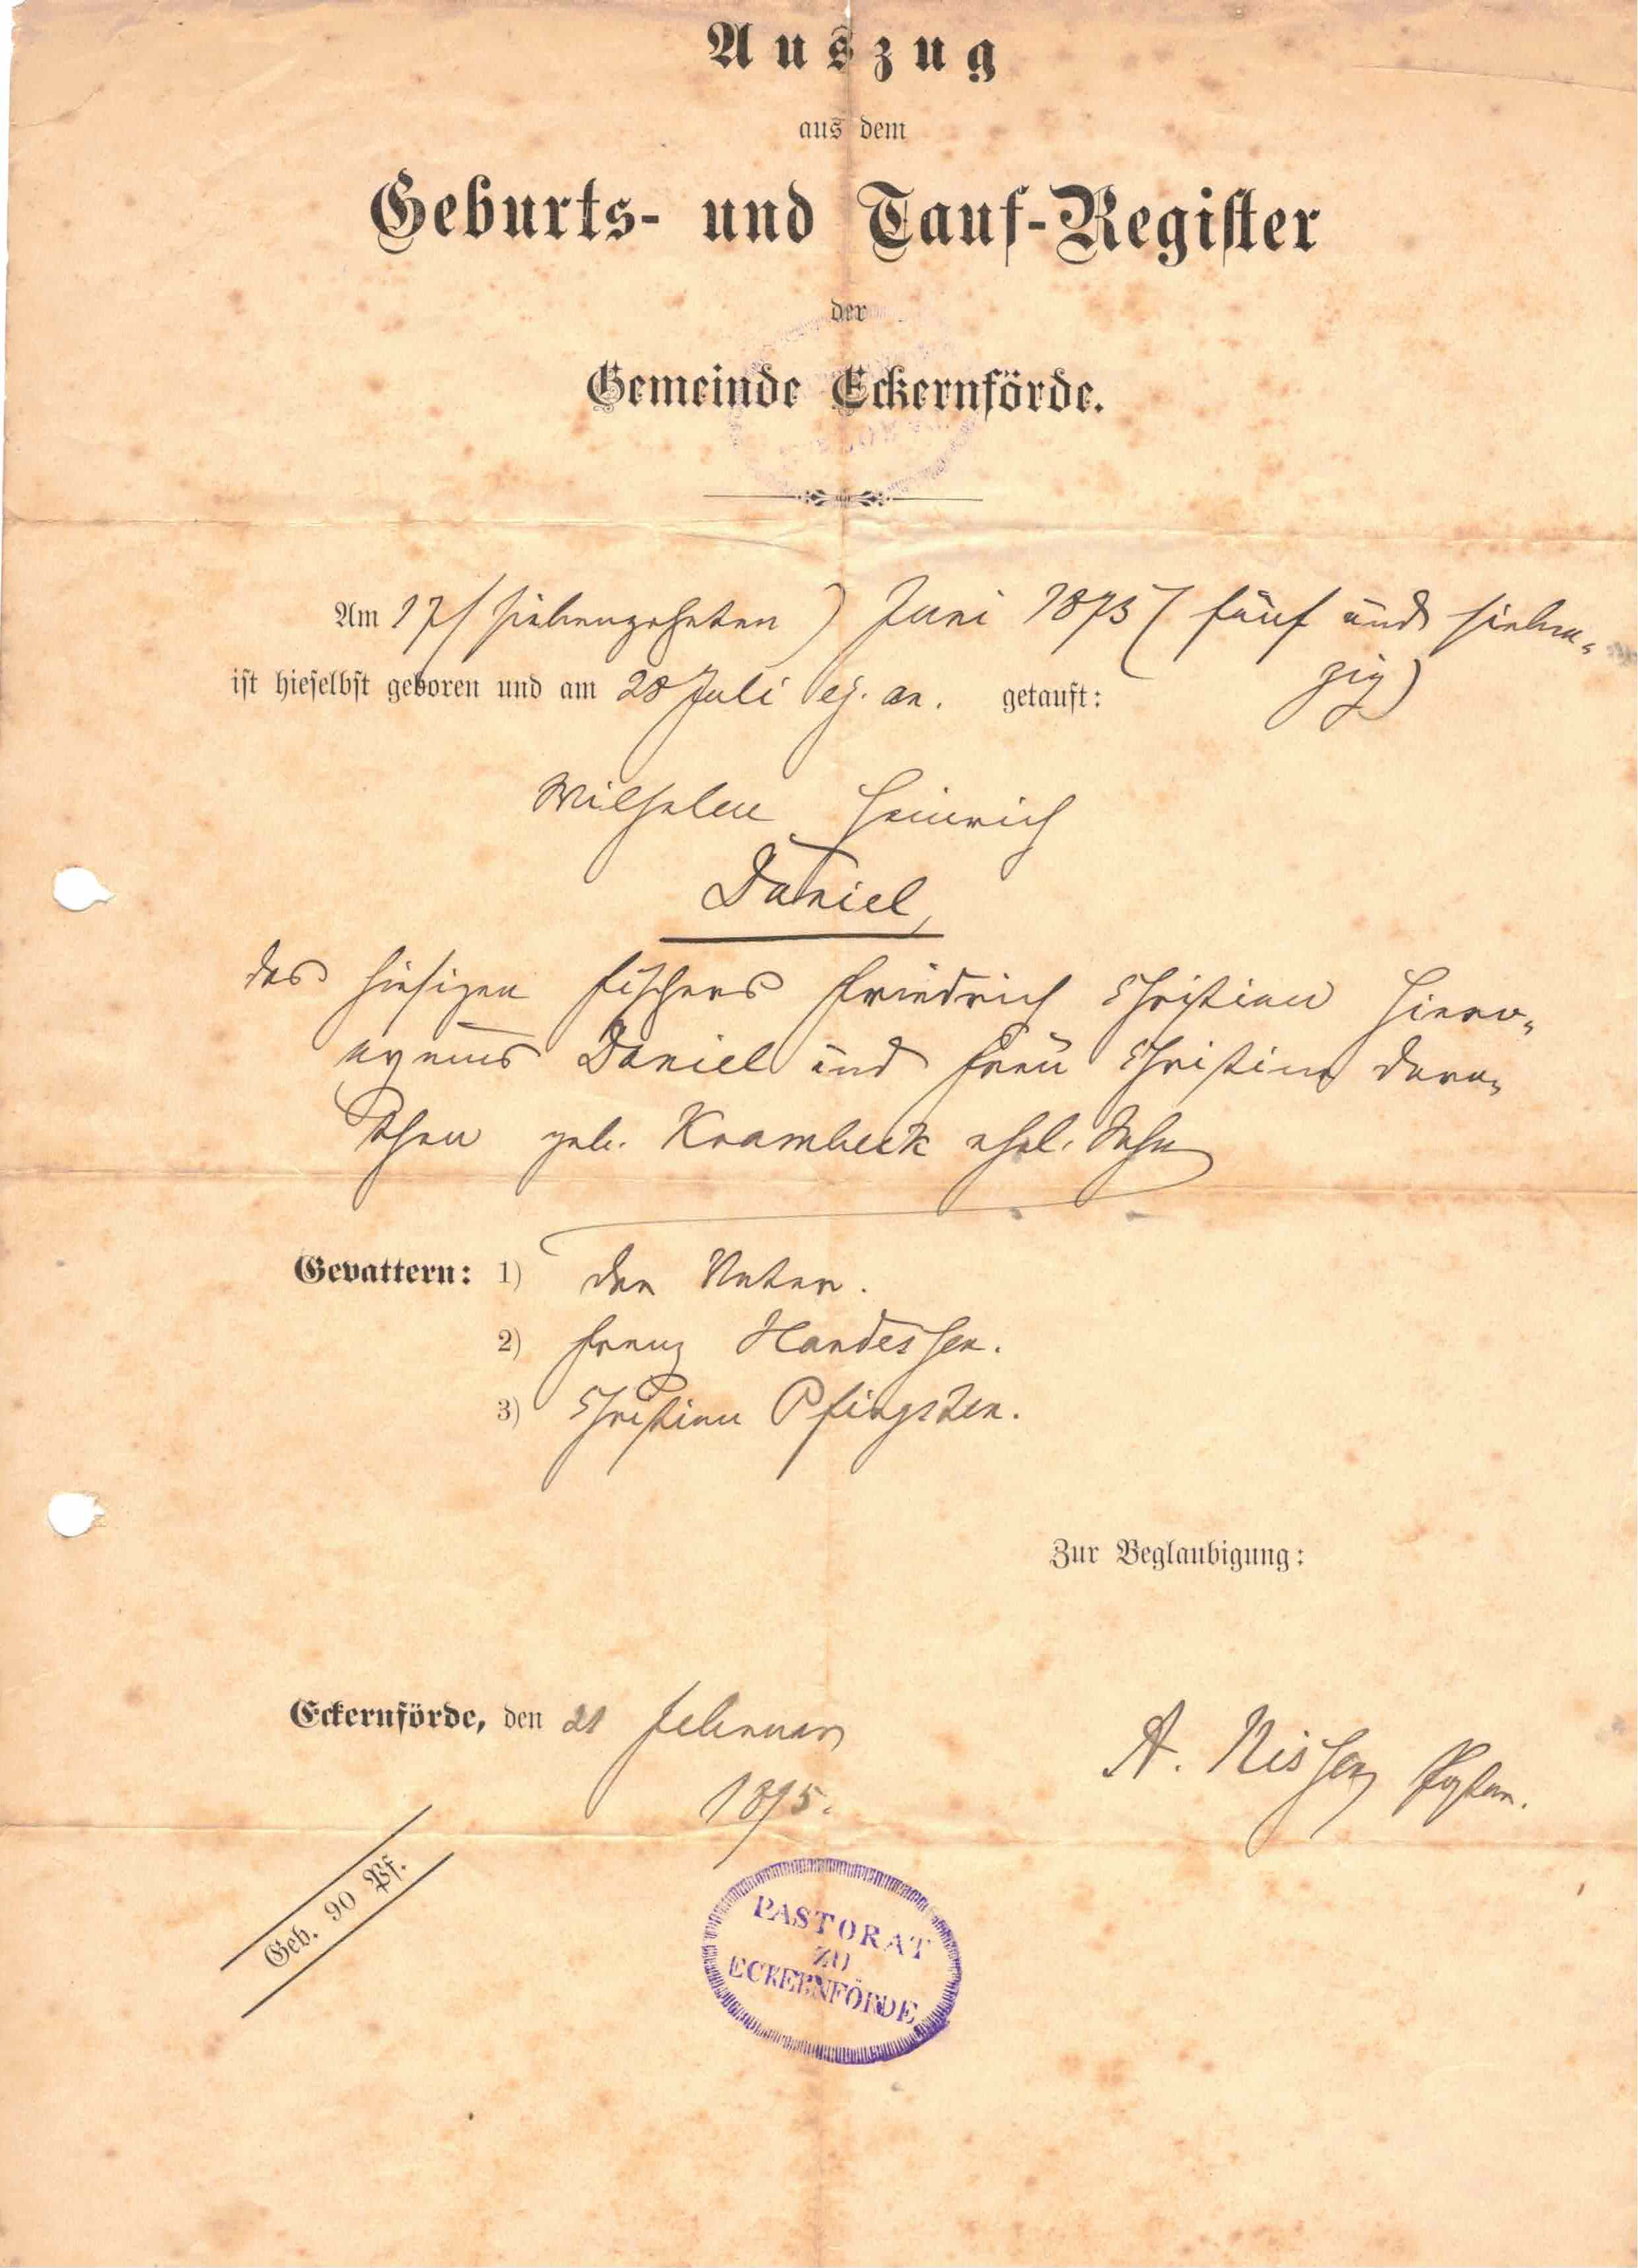 Auszug
aus dem
Geburts- und Tauf-Register
der
Gemeinde Eckernförde.
Am 17/ (siebenzehnten) Juni 1875 (fünf und sieben-
zig)
ist hieselbst geboren und am 28 Juli ej. an. getauft:
Wilhelm Heinrich
Daniel,
des hiesigen Fischers Friedrich Christian Hiero-
nymus Daniel und Frau Christine Doro-
thea geb. Krambeck ehel. Sohn
Gevattern: 1) der Vater.
2) Franz Handessen.
3) Christian Pfingsten.
Zur Beglaubigung:
Eckernförde, den 21 Februar
1895.
A. Nissen Pastor.
Geb. 90 Pf.
PASTORAT
ZU
ECKERNFÖRDE